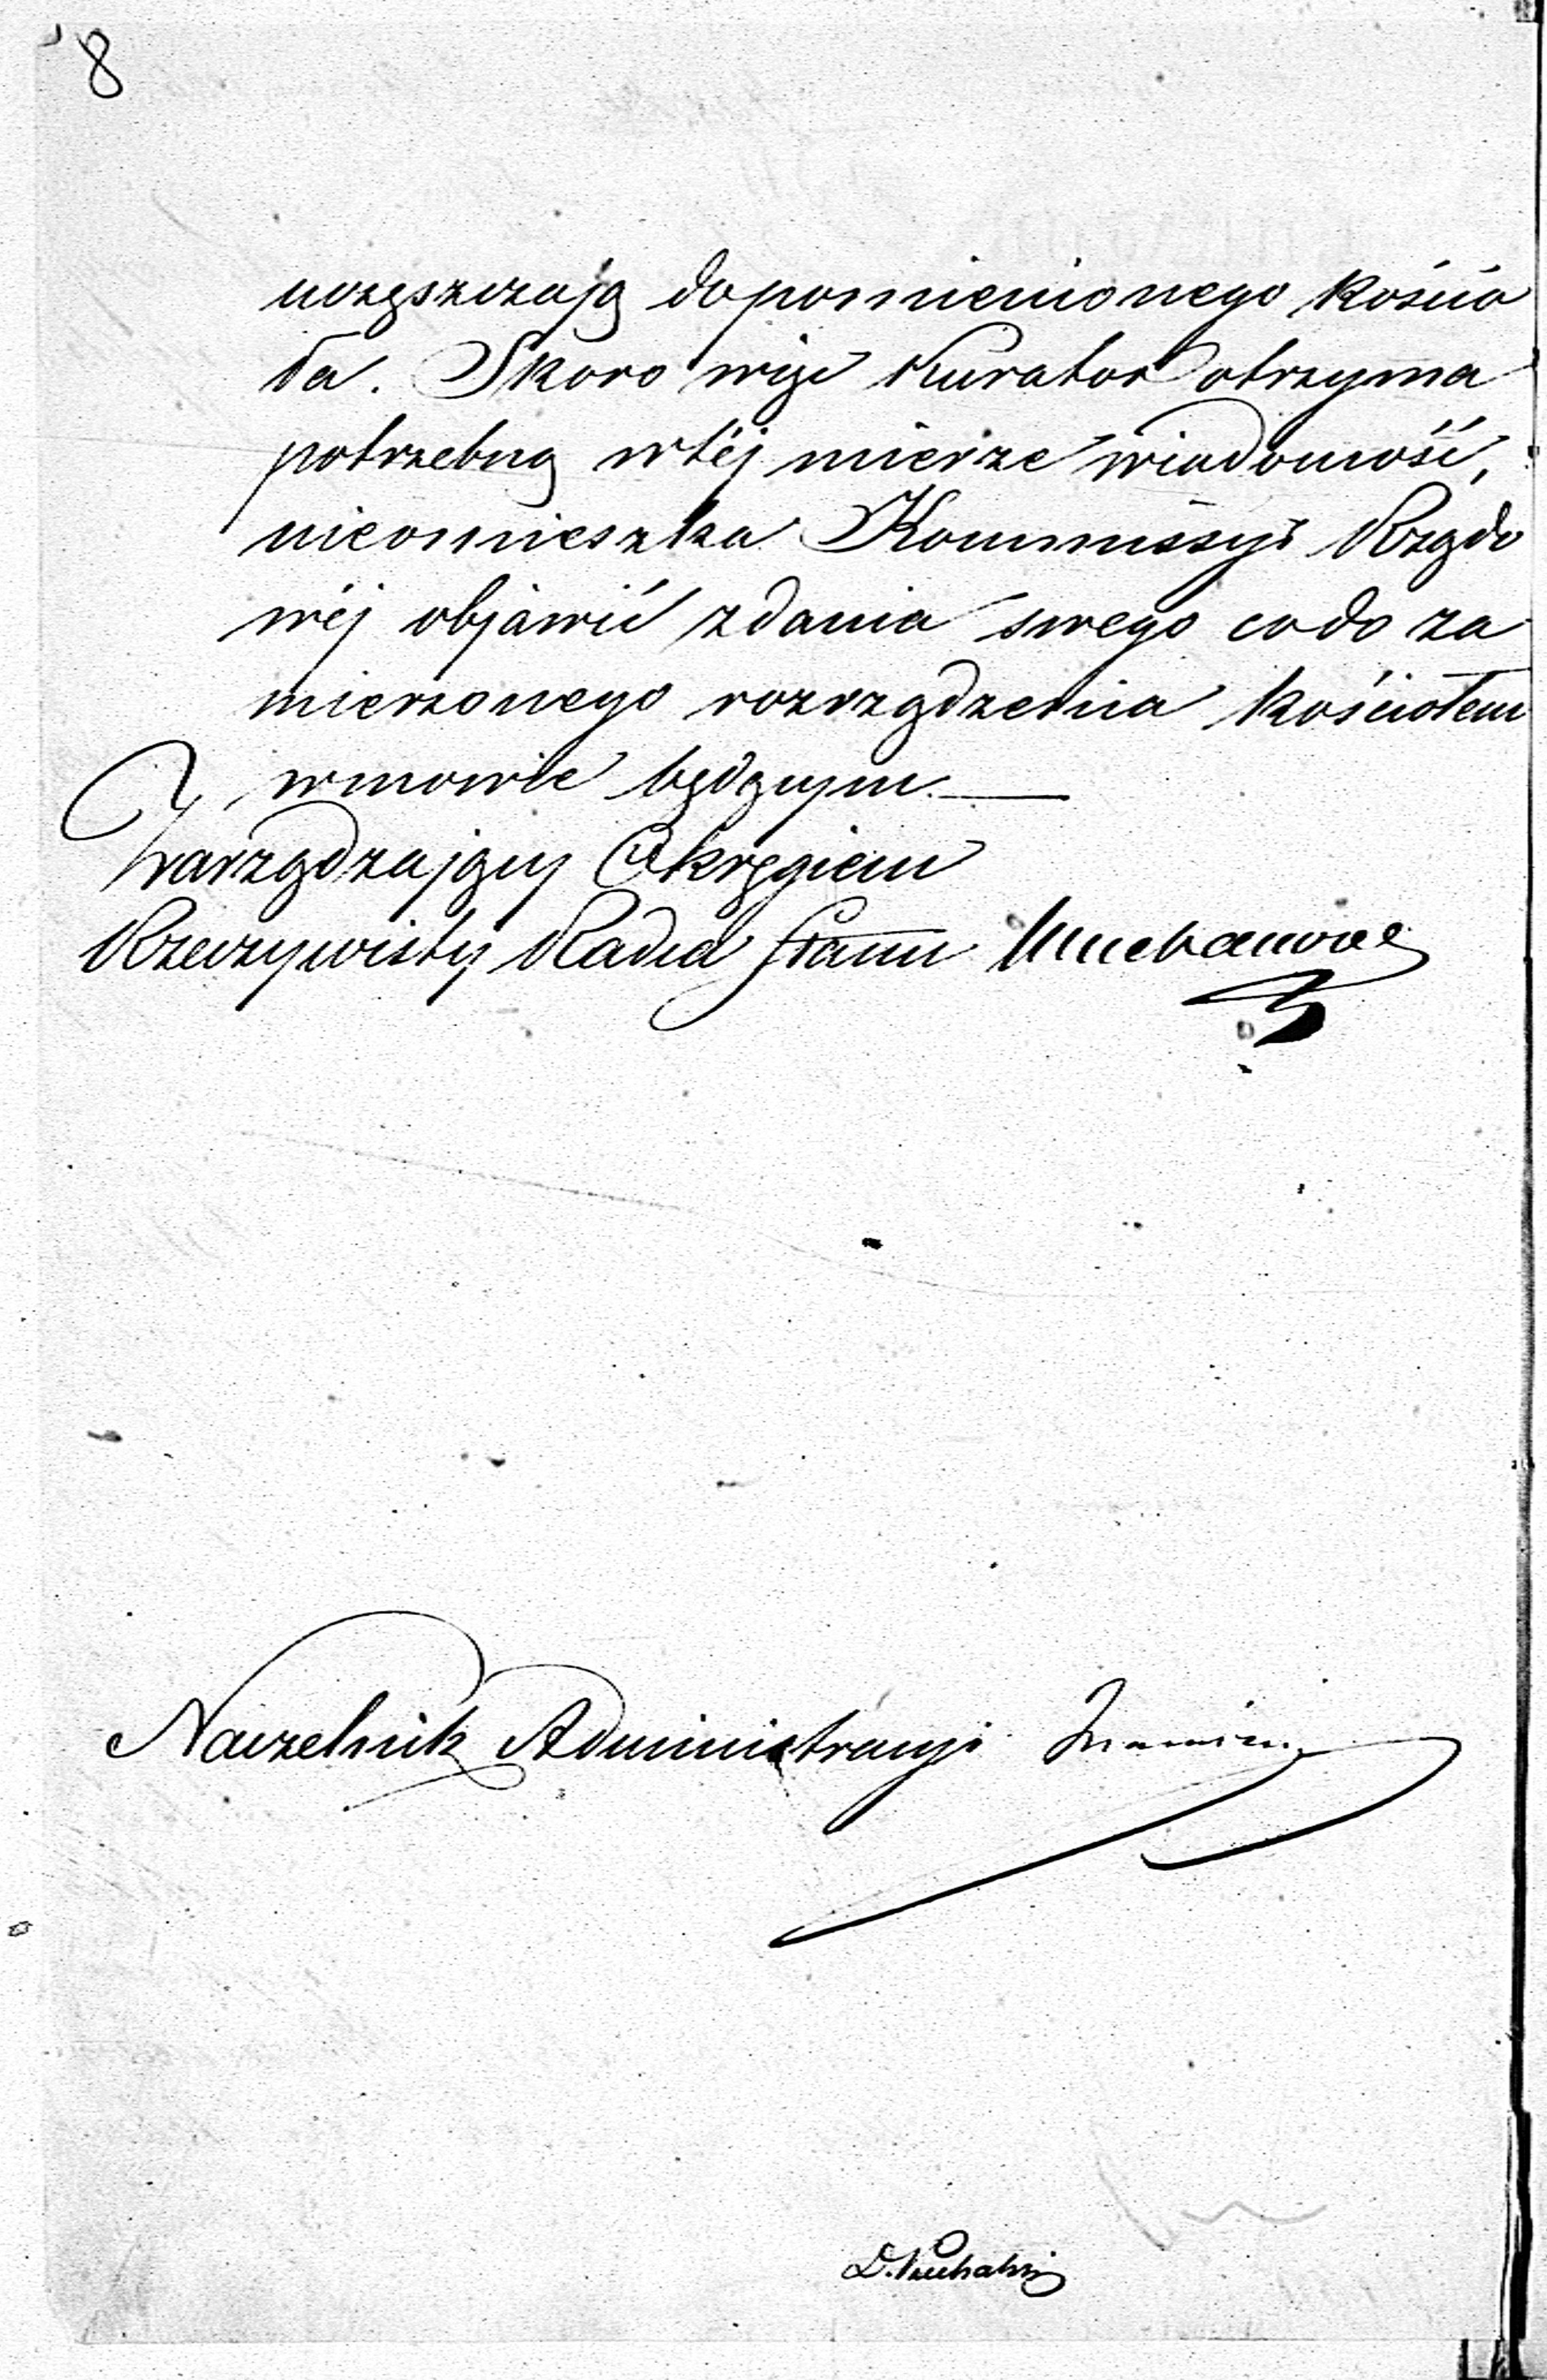 8
uczęszczają do pomienionego kościo
ła. Skoro więc Kurator otrzyma
potrzebną w téj mierze wiadomość,
nieomieszka Kommissyi Rządo
wéj objawić zdania swego co do za
mierzonego rozrządzenia kościołem
w mowie będącym.
Zarządzający Okręgiem
Rzeczywisty Radca Stanu Muchanow
Naczelnik Administracyi